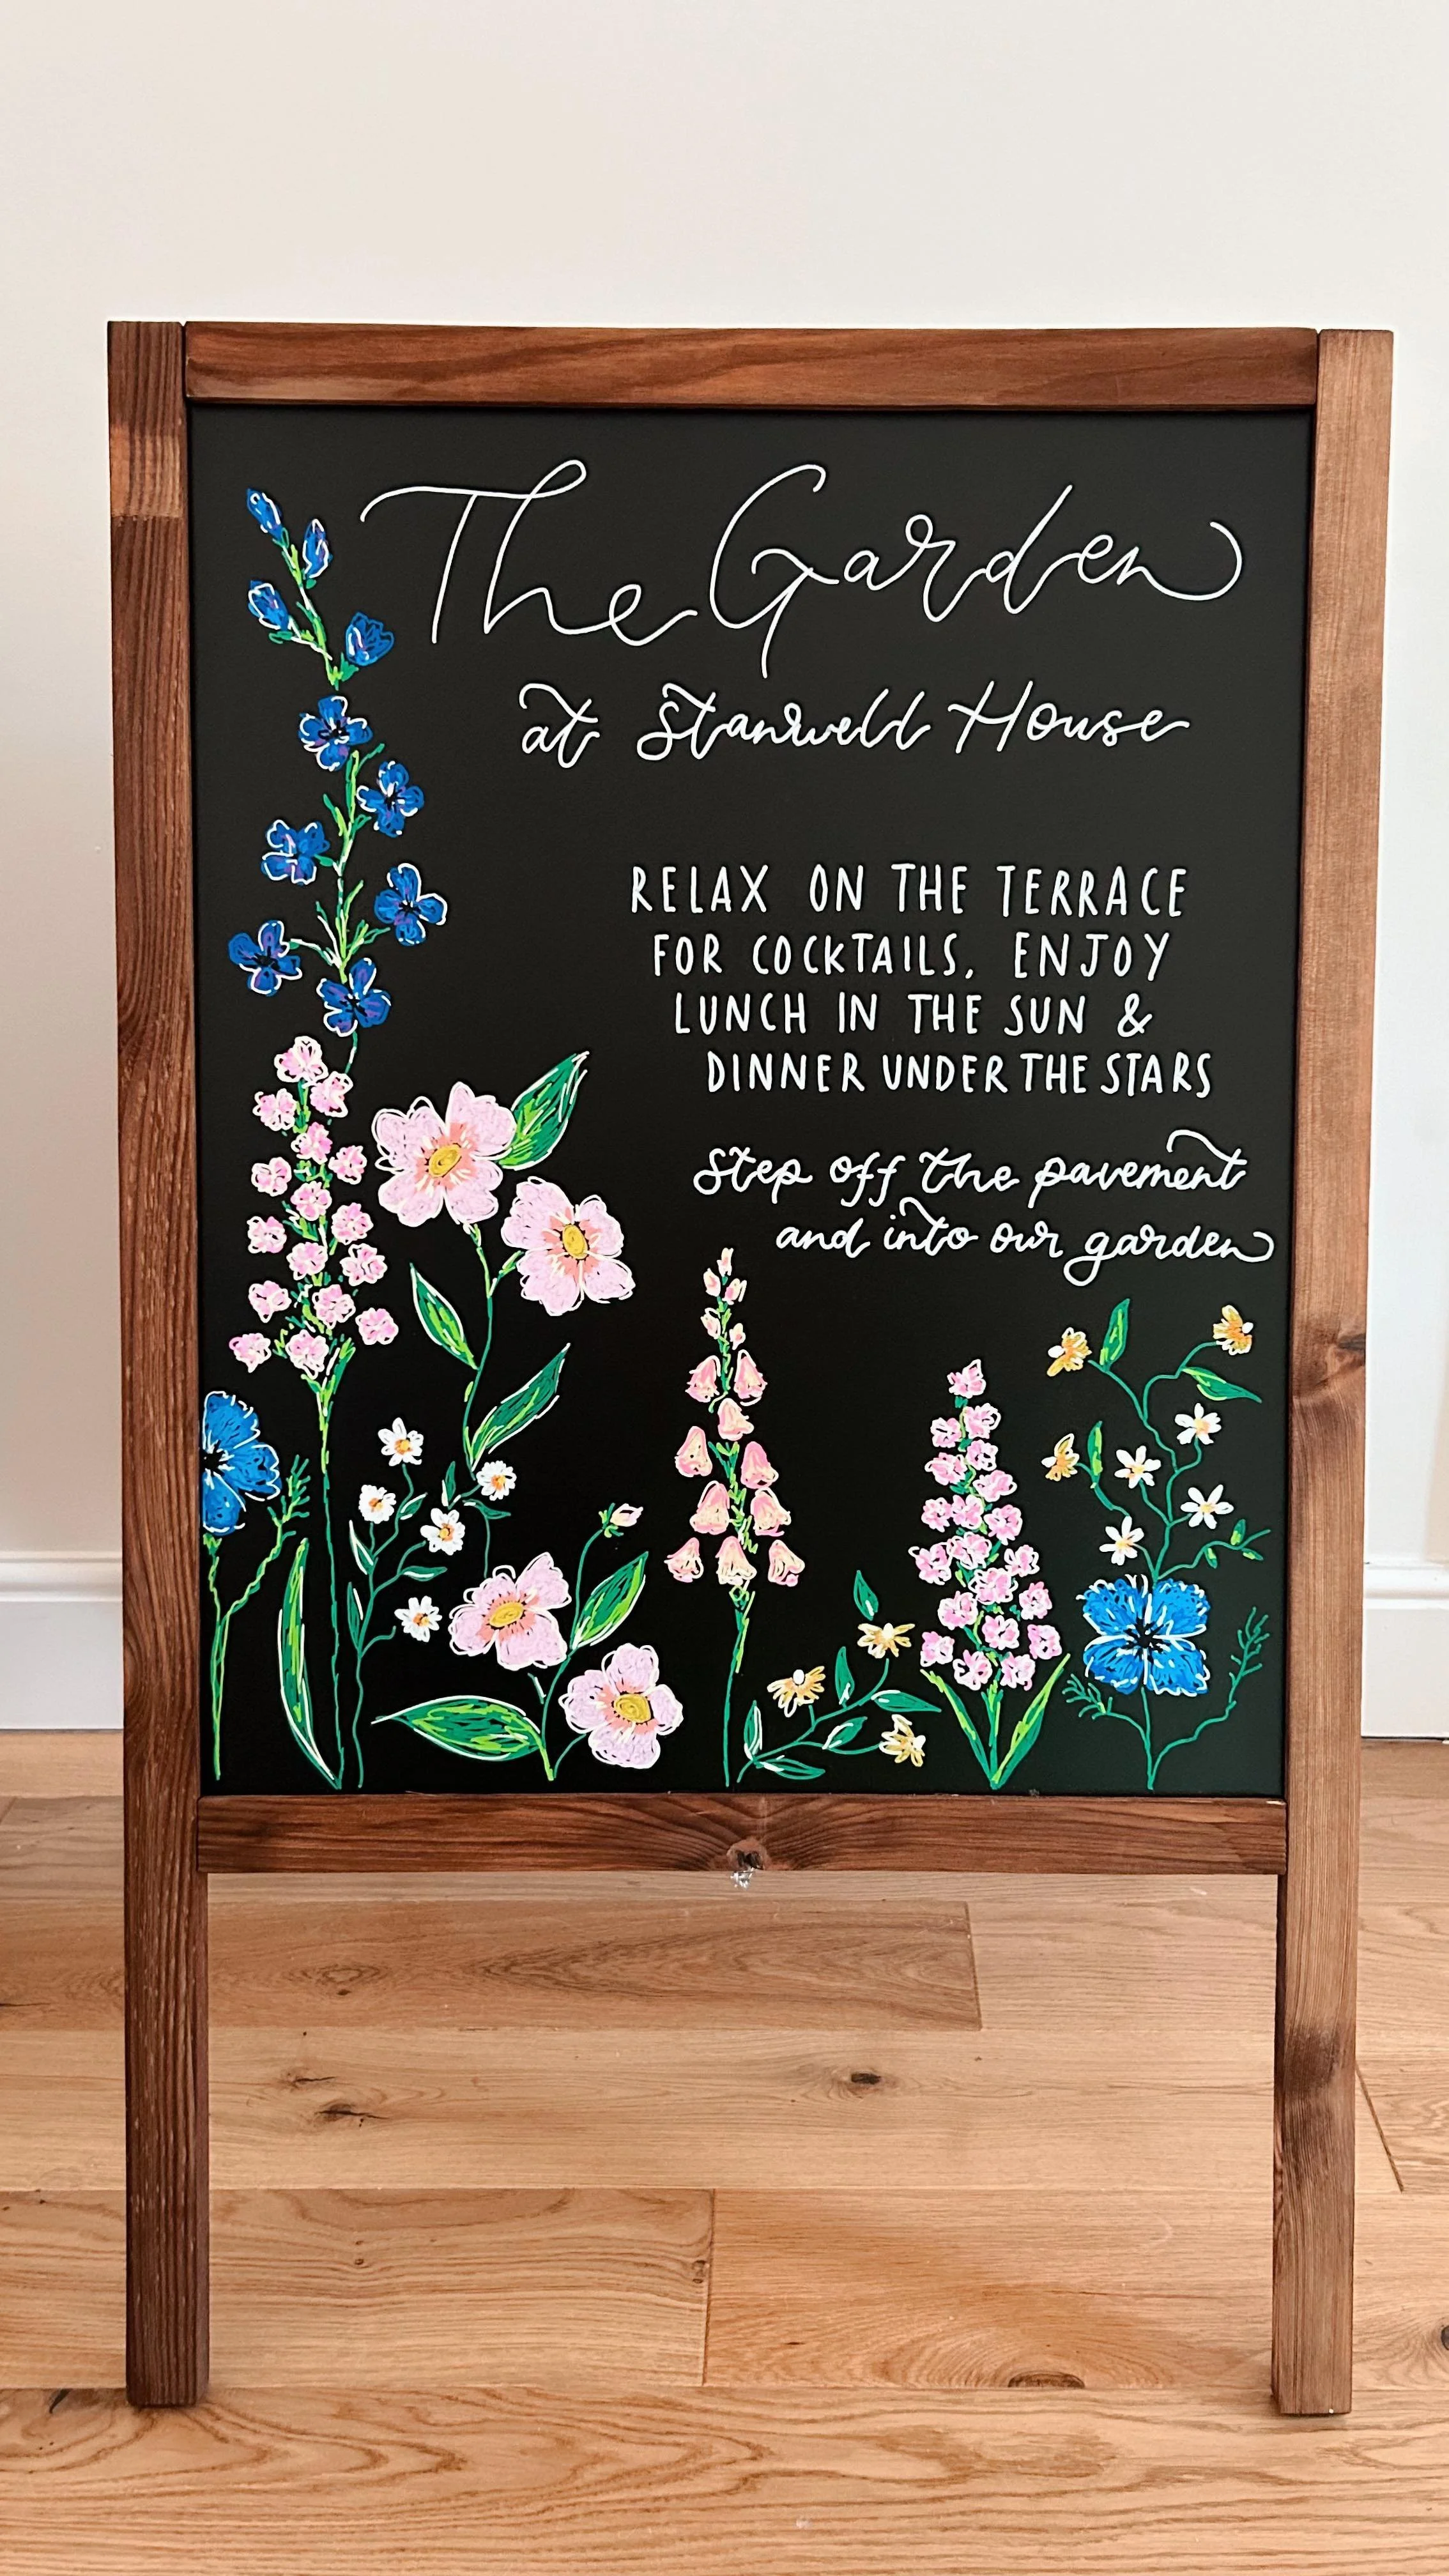 The Garden
at Stanwell House
RELAX ON THE TERRACE
FOR COCKTAILS, ENJOY
LUNCH IN THE SUN &
DINNER UNDER THE STARS
step off the pavement
and into our garden